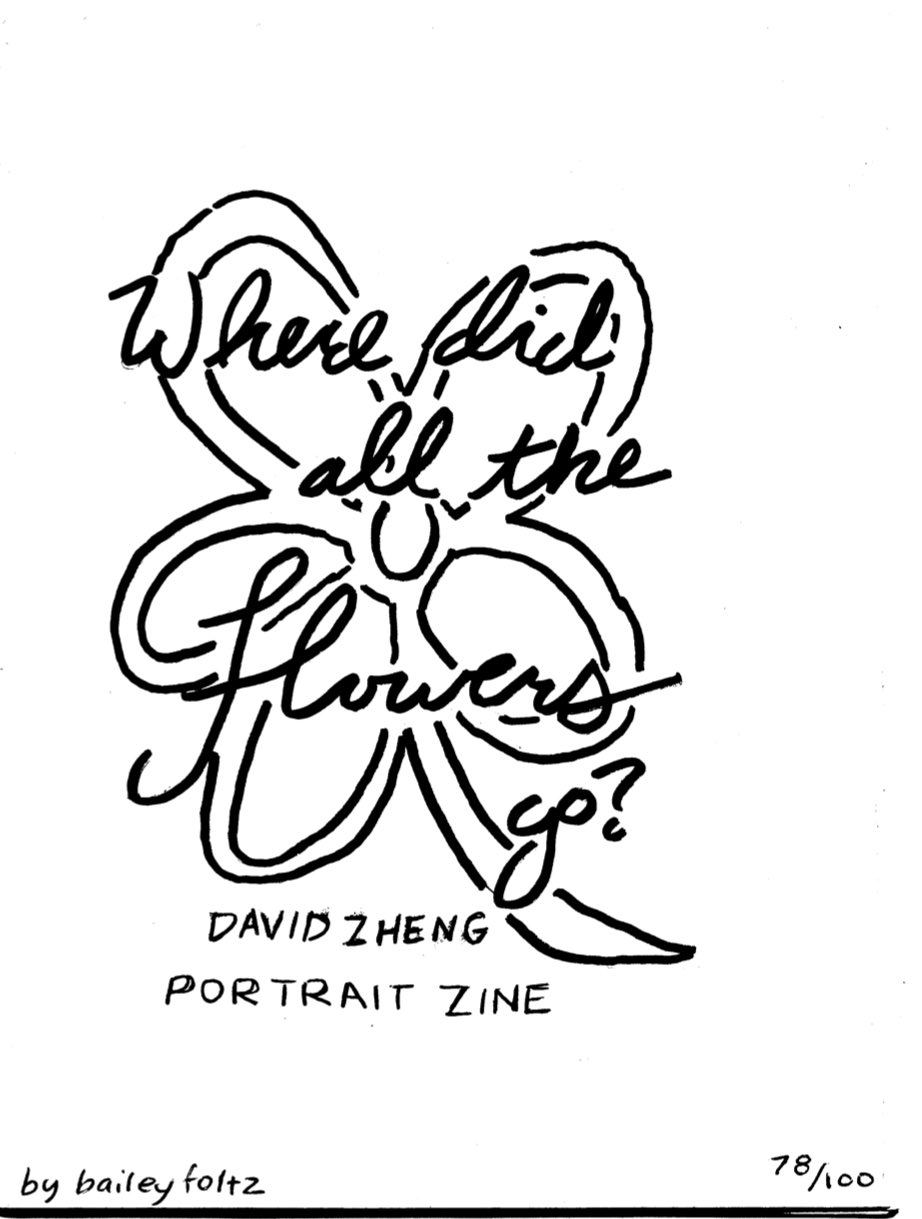 Where did
all the
flowers
go?
DAVID ZHENG
PORTRAIT ZINE
by bailey foltz
78/100